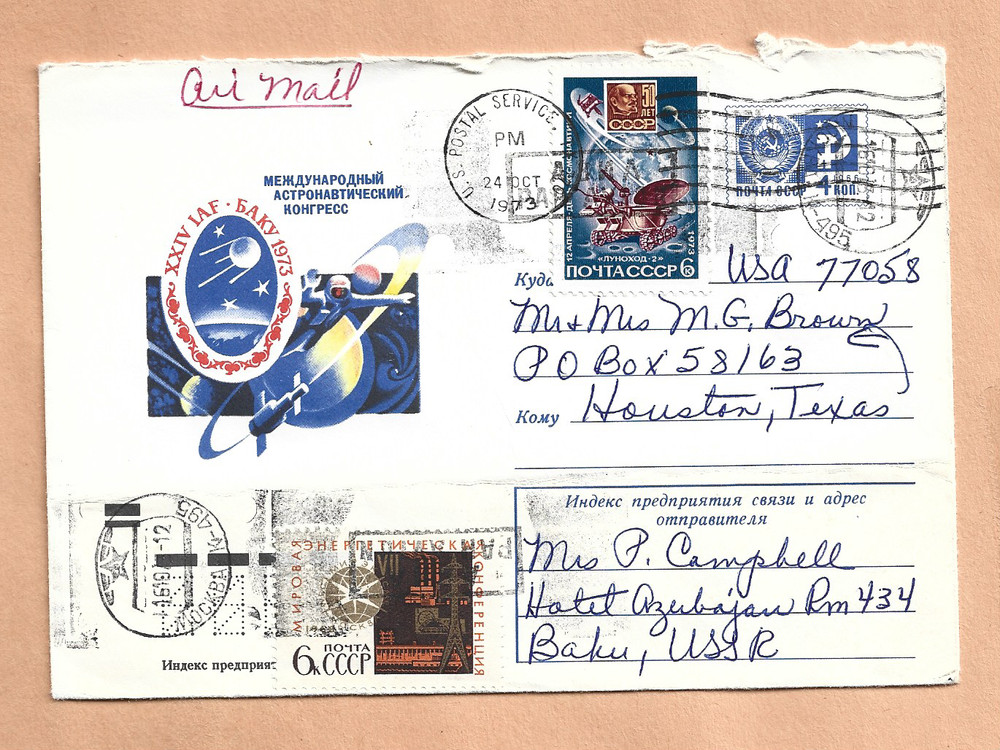 Air Mail
МЕЖДУНАРОДНЫЙ
АСТРОНАВТИЧЕСКИЙ
КОНГРЕСС
XXIV IAF · БАКУ 1973
U.S. POSTAL SERVICE
PM
24 OCT
1973
50
ЛЕТ
СССР
12 АПРЕЛЯ-ДЕНЬ КОСМОНАВТИКИ
1973
«ЛУНОХОД-2»
ПОЧТА СССР 6К
ПОЧТА СССР 4 КОП.
-495
Куда
USA 77058
Mr + Mrs M.G. Brown
PO Box 58163
Кому Houston, Texas
Индекс предприятия связи и адрес
отправителя
Mrs P. Campbell
Hotel Azerbajan Rm 434
Baku, USSR
МОСКВА
-495
МИРОВАЯ ЭНЕРГЕТИЧЕСКАЯ КОНФЕРЕНЦИЯ
VII
ПОЧТА
6К СССР
Индекс предприят